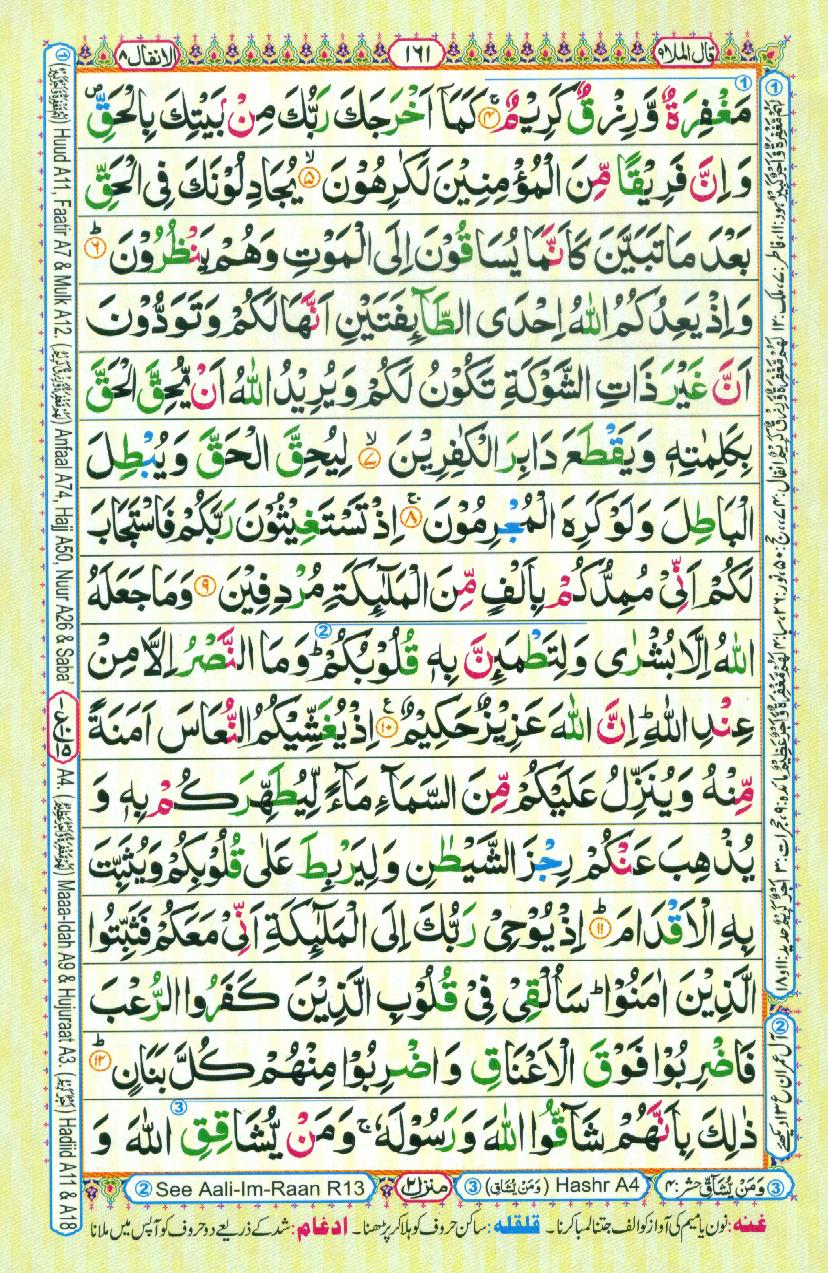 قال الملا ٩
١٦١
الانفال ٨
مَغْفِرَةٌ وَّرِزْقٌ كَرِيْمٌ ۚ﴿۴﴾ كَمَاۤ اَخْرَجَكَ رَبُّكَ مِنْۢ بَيْتِكَ بِالْحَقِّ ۪
وَاِنَّ فَرِيْقًا مِّنَ الْمُؤْمِنِيْنَ لَكٰرِهُوْنَ ۙ﴿۵﴾ يُجَادِلُوْنَكَ فِى الْحَقِّ
بَعْدَ مَا تَبَيَّنَ كَاَنَّمَا يُسَاقُوْنَ اِلَى الْمَوْتِ وَهُمْ يَنْظُرُوْنَ ؕ﴿۶﴾
وَاِذْ يَعِدُكُمُ اللّٰهُ اِحْدَى الطَّآئِفَتَيْنِ اَنَّهَا لَكُمْ وَتَوَدُّوْنَ
اَنَّ غَيْرَ ذَاتِ الشَّوْكَةِ تَكُوْنُ لَكُمْ وَيُرِيْدُ اللّٰهُ اَنْ يُّحِقَّ الْحَقَّ
بِكَلِمٰتِهٖ وَيَقْطَعَ دَابِرَ الْكٰفِرِيْنَ ۙ﴿۷﴾ لِيُحِقَّ الْحَقَّ وَيُبْطِلَ
الْبَاطِلَ وَلَوْ كَرِهَ الْمُجْرِمُوْنَ ۚ﴿۸﴾ اِذْ تَسْتَغِيْثُوْنَ رَبَّكُمْ فَاسْتَجَابَ
لَكُمْ اَنِّىْ مُمِدُّكُمْ بِاَلْفٍ مِّنَ الْمَلٰٓئِكَةِ مُرْدِفِيْنَ ﴿۹﴾ وَمَا جَعَلَهُ
اللّٰهُ اِلَّا بُشْرٰى وَلِتَطْمَئِنَّ بِهٖ قُلُوْبُكُمْ ؕ وَمَا النَّصْرُ اِلَّا مِنْ
عِنْدِ اللّٰهِ ؕ اِنَّ اللّٰهَ عَزِيْزٌ حَكِيْمٌ ﴿۱۰﴾ اِذْ يُغَشِّيْكُمُ النُّعَاسَ اَمَنَةً
مِّنْهُ وَيُنَزِّلُ عَلَيْكُمْ مِّنَ السَّمَآءِ مَآءً لِّيُطَهِّرَكُمْ بِهٖ وَ
يُذْهِبَ عَنْكُمْ رِجْزَ الشَّيْطٰنِ وَلِيَرْبِطَ عَلٰى قُلُوْبِكُمْ وَيُثَبِّتَ
بِهِ الْاَقْدَامَ ؕ﴿۱۱﴾ اِذْ يُوْحِىْ رَبُّكَ اِلَى الْمَلٰٓئِكَةِ اَنِّىْ مَعَكُمْ فَثَبِّتُوا
الَّذِيْنَ اٰمَنُوْا ؕ سَاُلْقِىْ فِىْ قُلُوْبِ الَّذِيْنَ كَفَرُوا الرُّعْبَ
فَاضْرِبُوْا فَوْقَ الْاَعْنَاقِ وَاضْرِبُوْا مِنْهُمْ كُلَّ بَنَانٍ ؕ﴿۱۲﴾
ذٰلِكَ بِاَنَّهُمْ شَآقُّوا اللّٰهَ وَرَسُوْلَهٗ ۚ وَمَنْ يُّشَاقِقِ اللّٰهَ وَ
③ وَمَنْ يُّشَآقِّ حشر: ۴
③ (وَمَنْ يُّشَاقِّ) Hashr A4
منزل ٢
② See Aali-Im-Raan R13
غنه: نون یا میم کی آواز کو الف جتنا لمبا کرنا ۔ قلقله: ساکن حروف کو ہلا کر پڑھنا ۔ ادغام: شد کے ذریعے دو حروف کو آپس میں ملانا
① Huud A11, Faatir A7 & Mulk A12. Anfaal A74, Hajj A50, Nuur A26 & Saba' A4. Maaa-Idah A9 & Hujuraat A3. Hadiid A11 & A18
② آل عمران ع ۱۳ دیکھئے